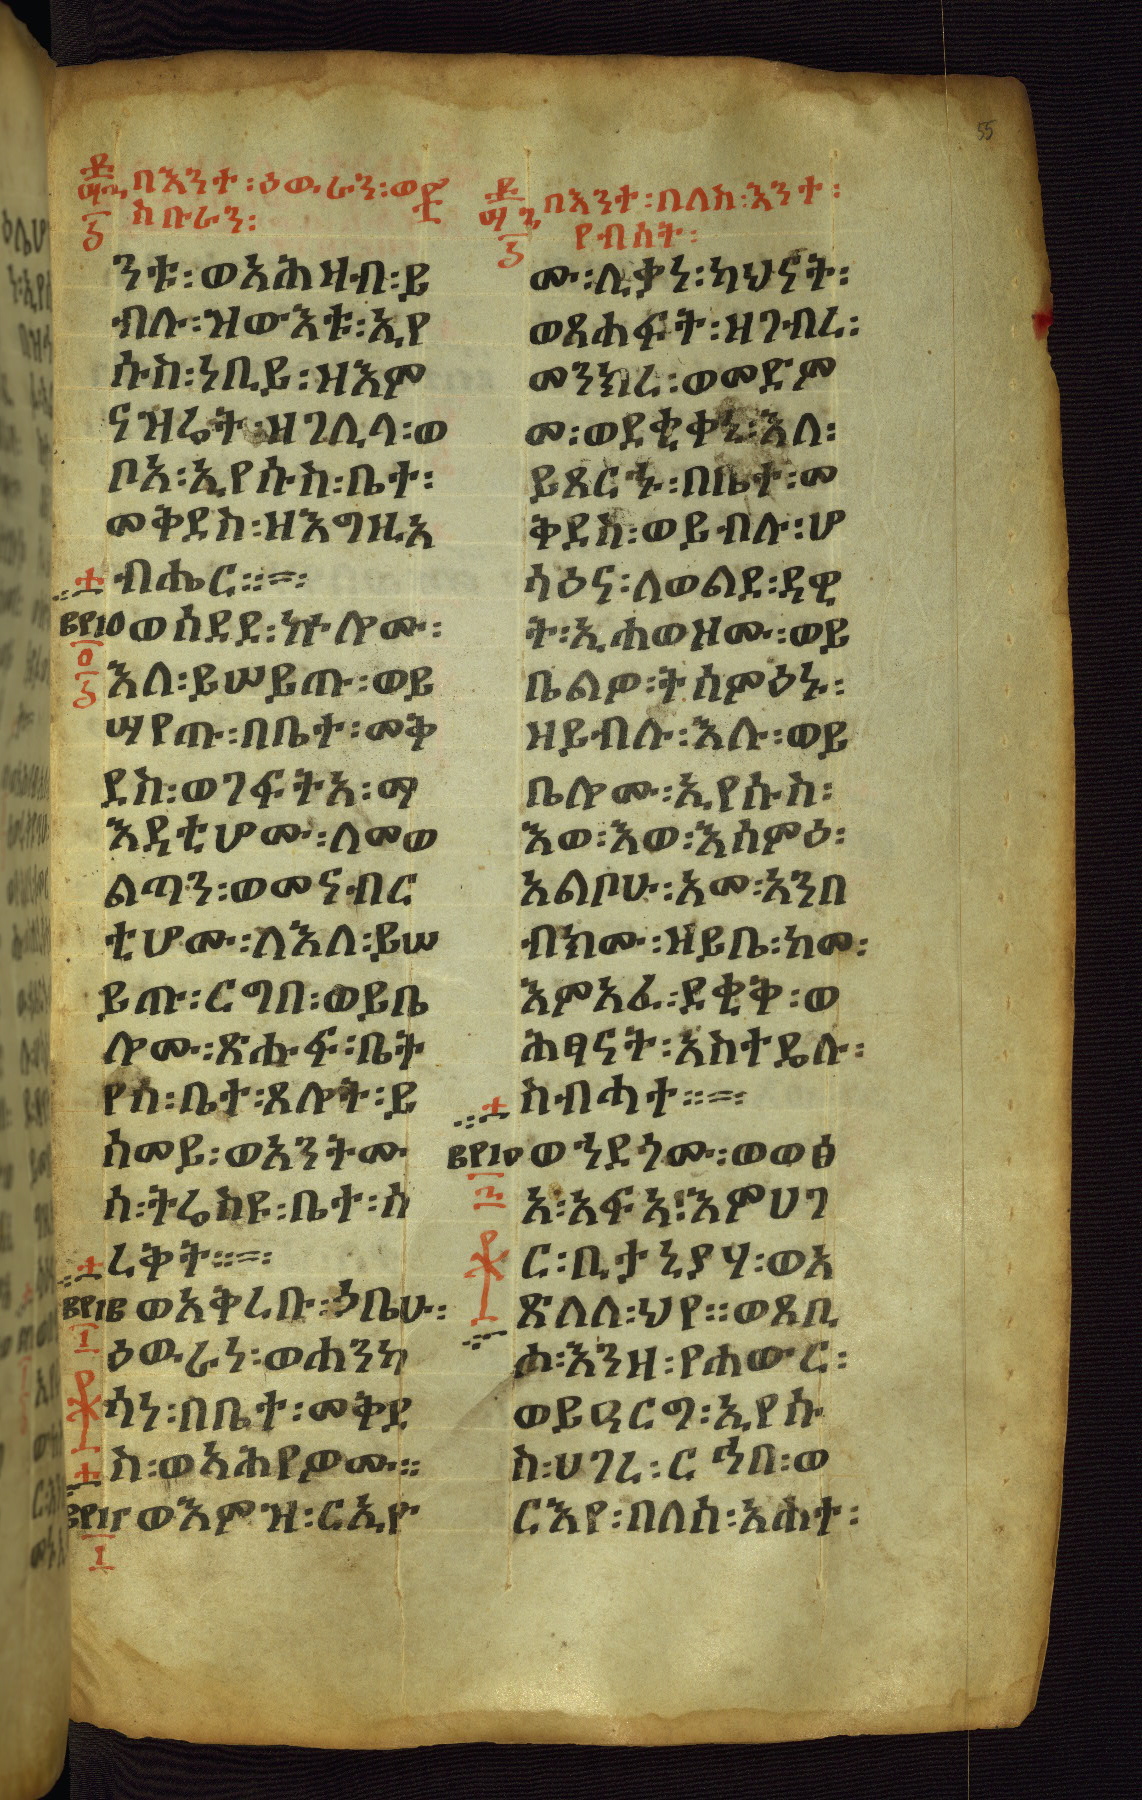 55
በእንተ፡ዕውራን፡ወ
ስቡራን፡
ንቱ፡ወአሕዛብ፡ይ
ብሉ፡ዝውእቱ፡ኢየ
ሱስ፡ነቢይ፡ዘእም
ናዝሬት፡ዘገሊላ፡ወ
ቦአ፡ኢየሱስ፡ቤተ፡
መቅደስ፡ዘእግዚአ
ብሔር።
ወሰደደ፡ኵሎሙ፡
እለ፡ይሠይጡ፡ወይ
ሣየጡ፡በቤተ፡መቅ
ደስ፡ወገፍትአ፡ማ
እዳቲሆሙ፡ለመወ
ልጣን፡ወመናብር
ቲሆሙ፡ለእለ፡ይሠ
ይጡ፡ርግበ፡ወይቤ
ሎሙ፡ጽሑፍ፡ቤት
የሰ፡ቤተ፡ጸሎት፡ይ
ሰመይ፡ወአንትሙ
ሰ፡ትሬስዩ፡ቤተ፡ሰ
ረቅት።
ወአቅረቡ፡ኀቤሁ፡
ዕውራነ፡ወሐንካ
ሳነ፡በቤተ፡መቅደ
ስ፡ወአሕየዎሙ።
ወእምዝ፡ርኢዮ
በእንተ፡በለስ፡እንተ፡
የብሰት፡
ሙ፡ሊቃነ፡ካህናት፡
ወጸሐፍት፡ዘገብረ፡
መንክረ፡ወመድም
መ፡ወደቂቀኒ፡እለ፡
ይጸርኁ፡በቤተ፡መ
ቅደስ፡ወይብሉ፡ሆ
ሳዕና፡ለወልደ፡ዳዊ
ት፡ኢሐወዘሙ፡ወይ
ቤልዎ፡ትሰምዕኑ፡
ዘይብሉ፡እሉ፡ወይ
ቤሎሙ፡ኢየሱስ፡
እወ፡እወ፡እሰምዕ፡
አልቦሁ፡አመ፡አንበ
ብክሙ፡ዘይቤ፡ከመ፡
እምአፈ፡ደቂቅ፡ወ
ሕፃናት፡አስተዴሉ፡
ስብሓተ።
ወኀደጎሙ፡ወወፅ
አ፡አፍአ፡እምሀገ
ር፡ቢታኒያሃ፡ወአ
ጽለለ፡ህየ።ወጸቢ
ሖ፡እንዘ፡የሐውር፡
ወይዐርግ፡ኢየሱ
ስ፡ሀገረ፡ርኅበ፡ወ
ርእየ፡በለሰ፡አሐተ፡